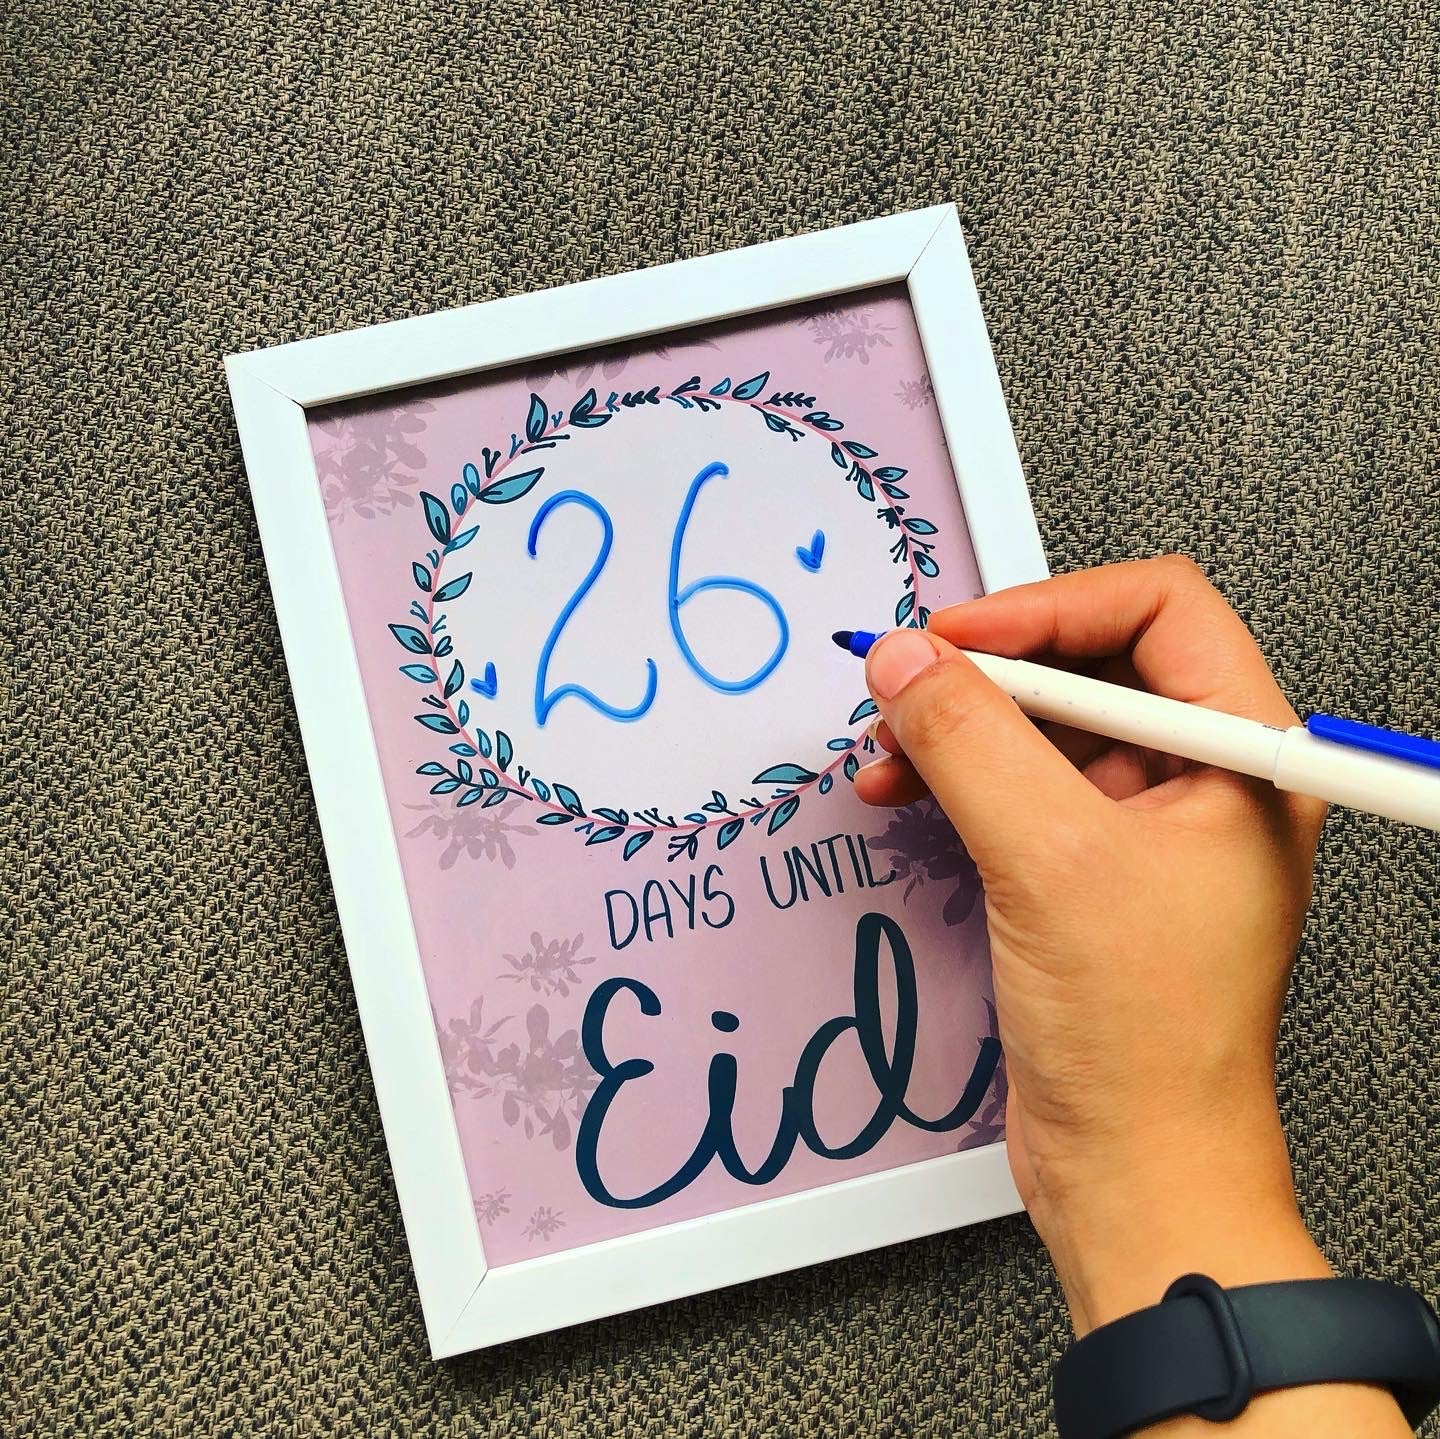 26
DAYS UNTIL
Eid